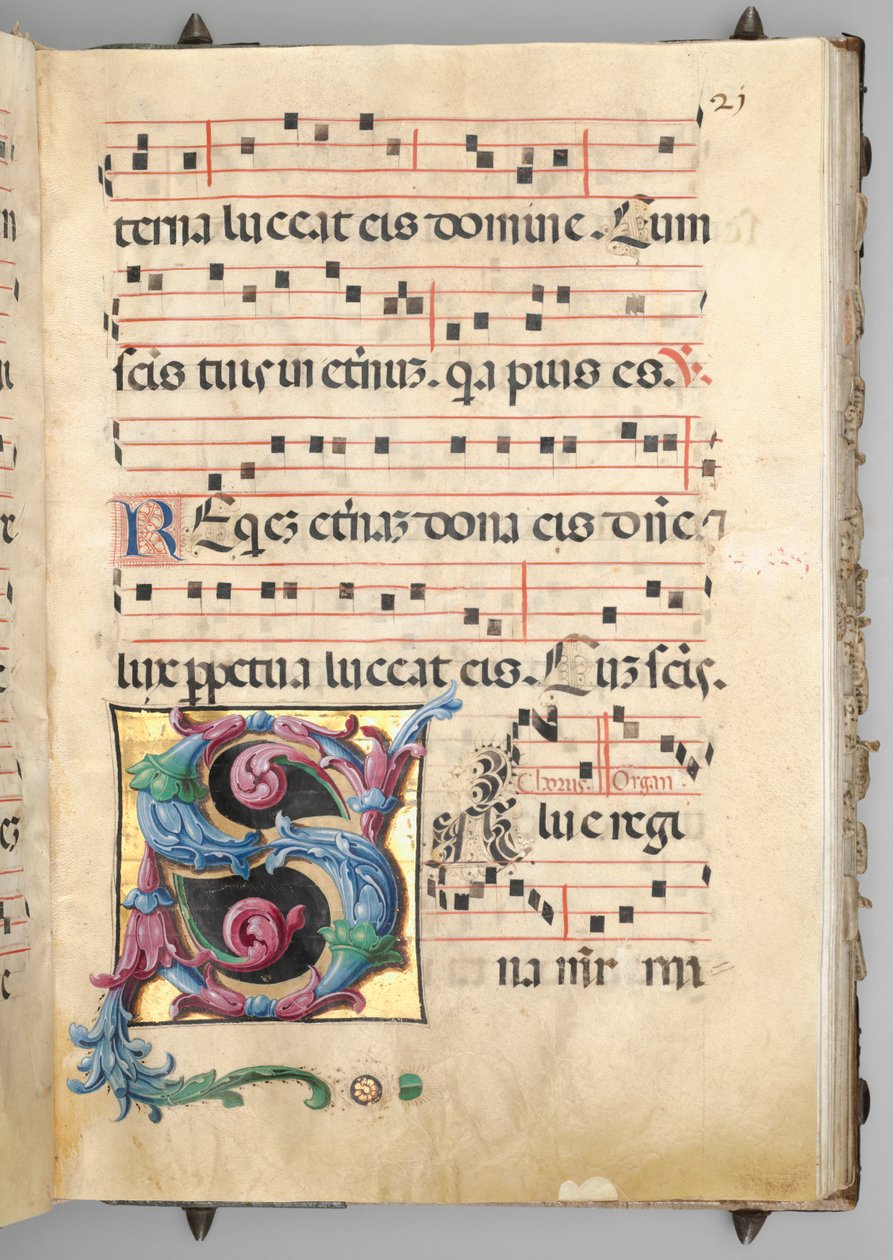 21
terna luceat eis domine. Cum
scīs tuis in etn̄uz. qa pius es. V.
REqez etn̄az dona eis dn̄e. 7
lux ppetua luceat eis. Cuz scīs.
Chorus. Organ
SAlue regi
na mīr mi=